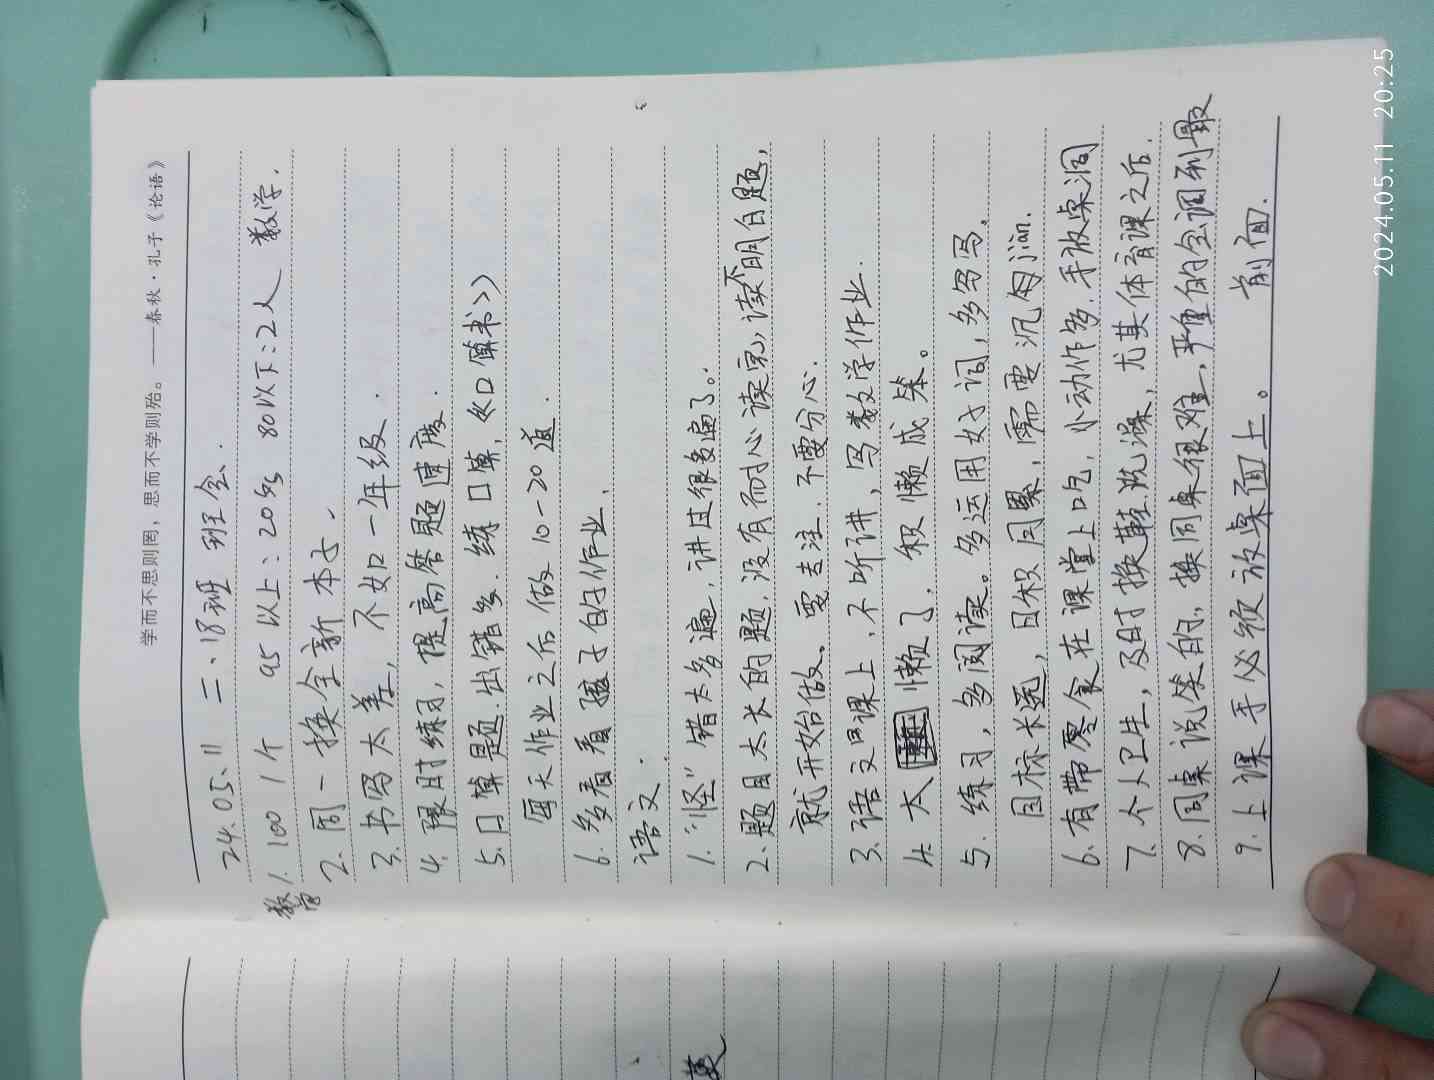 学而不思则罔，思而不学则殆。——春秋·孔子《论语》
24.05.11 二.18班 班会.
数学
1. 100 1个 95以上：20多 80以下：2人 数学.
2. 周一换全新本子.
3. 书写太差，不如一年级.
4. 限时练习，提高答题速度.
5. 口算题.出错多.练口算，《口算书》
每天作业之后做10-20道.
6. 多看看孩子的作业.
语文.
1. "怪"错太多遍，讲过很多遍了.
2. 题目太长的题，没有耐心读完，读不明白题，
就开始做。要专注.不要分心.
3. 语文课上，不听讲，写数学作业.
4. 太懒了. 积懒成笨。
5. 练习，多阅读。多运用好词，多写写.
目标长远，日积月累，需要沉甸jian.
6. 有带零食在课堂上吃，小动作多.手放桌洞
7. 个人卫生，及时换鞋洗澡，尤其体育课之后.
8. 同桌说笑的，换同桌很难，严重的会调到最
前面.
9. 上课手必须放桌面上。
2024.05.11 20:25